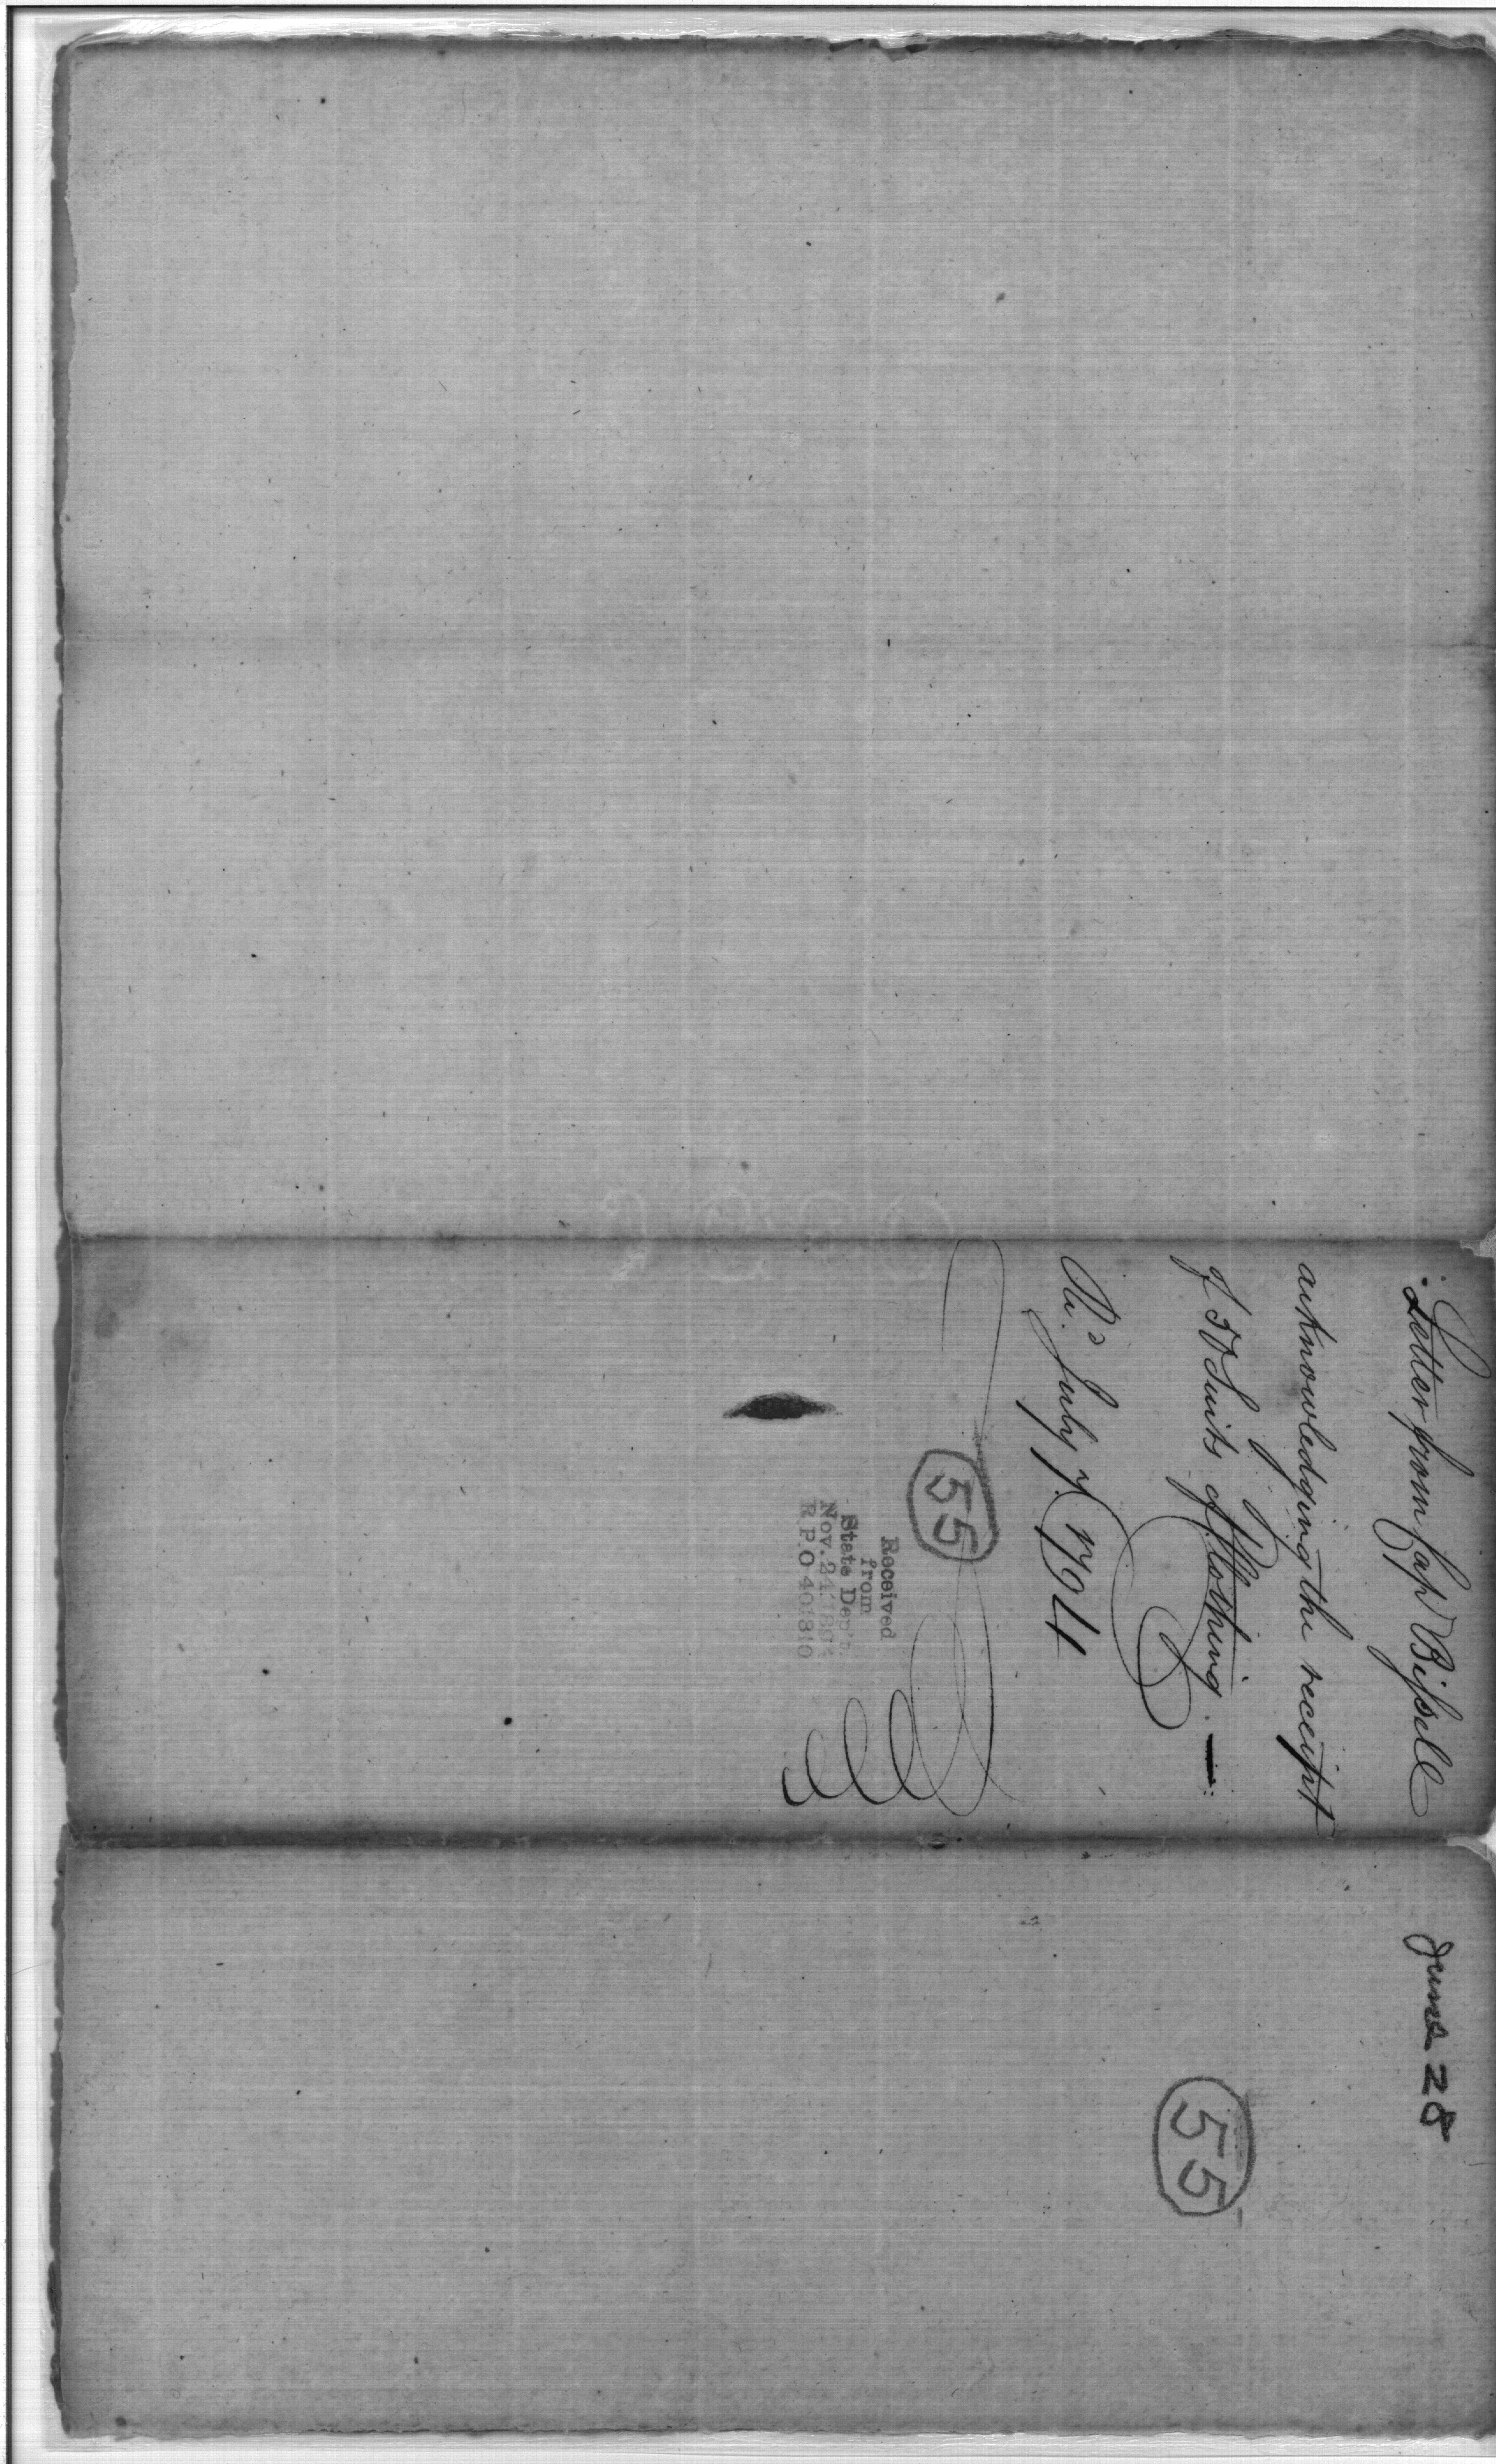 Letter from Cap.t Bissell
acknowledging the receipt
of 50 Suits of Clothing. —
Re.d July 7. 1794
55
Received
from
State Dep't.
Nov. 24, 1894
R P O 401810
June 28
55